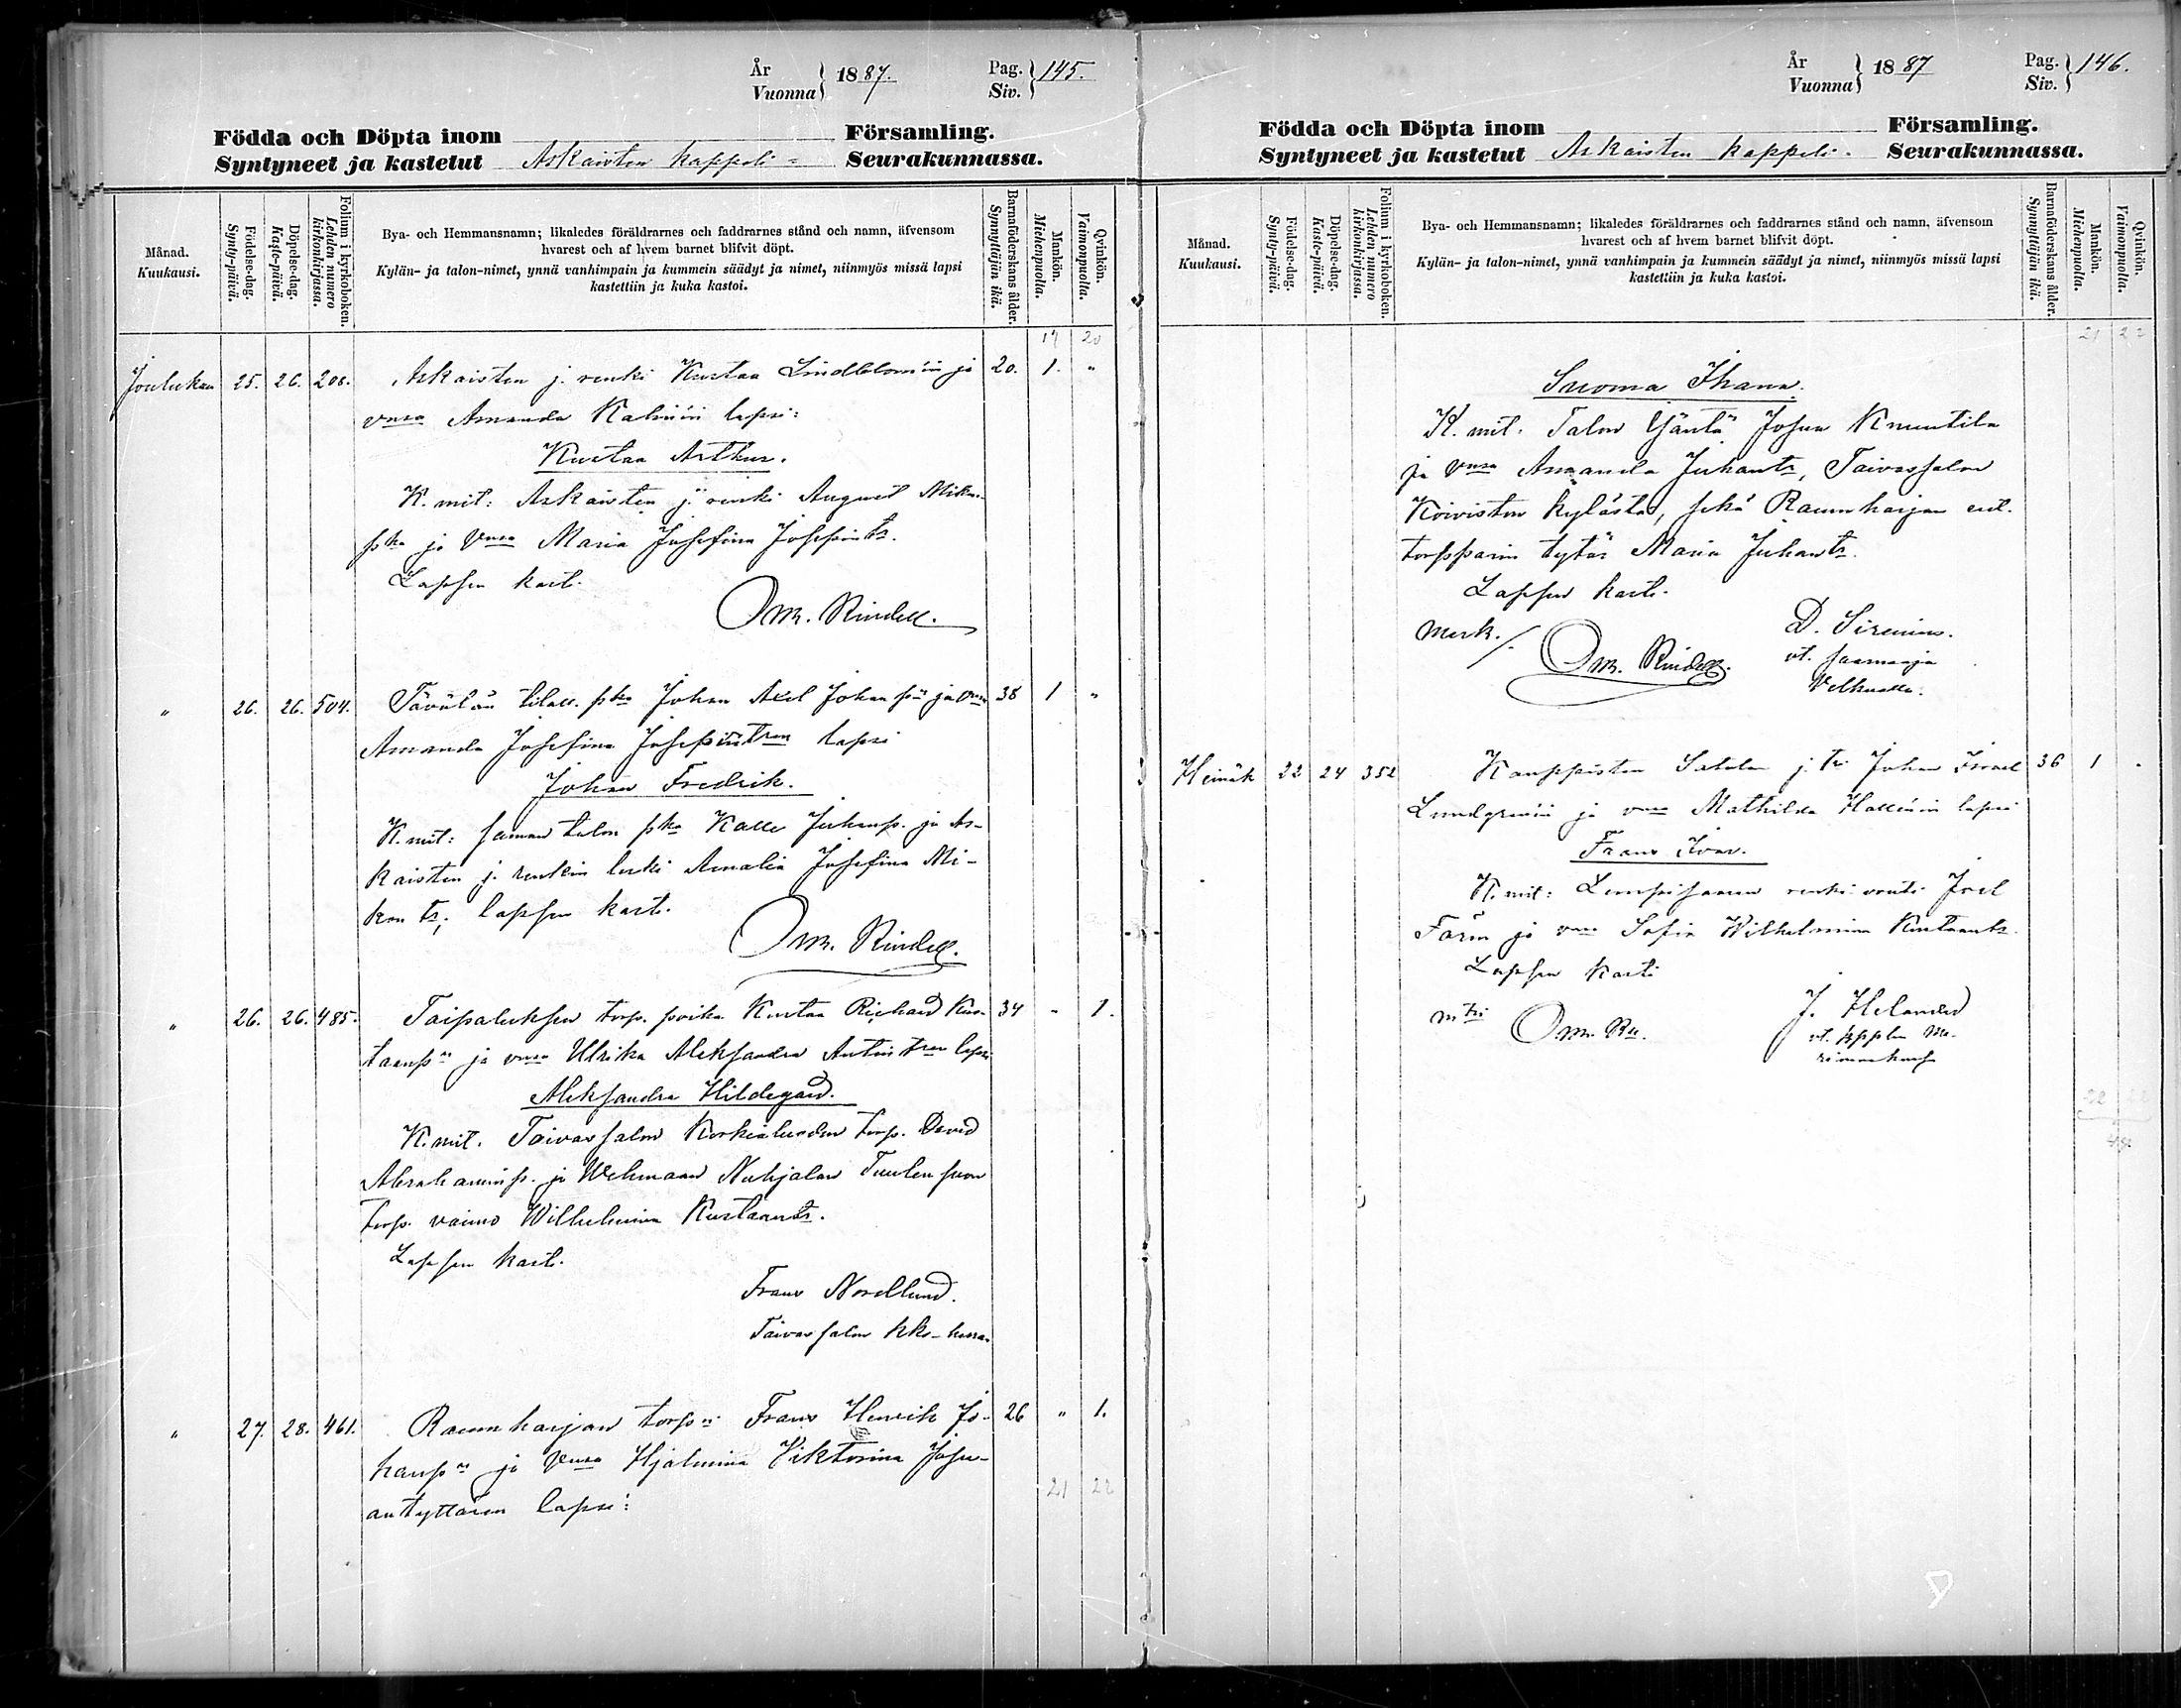 År
Vuonna } 1887.
Pag.
Siv. } 145.
Födda och Döpta inom Församling.
Syntyneet ja kastetut Askaisten kappeli- Seurakunnassa.
Månad. Kuukausi.
Födelse-dag. Synty-päivä.
Döpelse-dag. Kaste-päivä.
Folium i kyrkoboken. Lehden numero kirkonkirjassa.
Bya- och Hemmansnamn; likaledes föräldrarnes och faddrarnes stånd och namn, äfvensom
hvarest och af hvem barnet blifvit döpt.
Kylän- ja talon-nimet, ynnä vanhimpain ja kummein säädyt ja nimet, niinmyös missä lapsi
kastettiin ja kuka kastoi.
Barnaföderskans ålder. Synnyttäjän ikä.
Mankön. Miehenpuolta.
Qvinkön. Vaimonpuolta.
17 20
Joulukuu 25. 26. 208. Askaisten j. renki Kustaa Lindblomin ja 20. 1. "
vmsa Amanda Kalinin lapsi:
Kustaa Arthur.
K. mit: Askaisten j. renki August Mikn.
pka ja Vmsa Maria Josefina Josefintr.
Lapsen kast.
Om. Rindell.
" 26. 26. 504. Tävälän tilall. pka Johan Axel Johanp:n ja vmsa 38 1 "
Amanda Josefina Josefintren lapsi
Johan Fredrik.
K. mit: saman talon pka Kalle Juhanp. ja As-
kaisten j. renkin leski Amalia Josefina Mi-
kon tr; lapsen kast.
Om. Rindell.
" 26. 26. 485. Taipaluksen torp. poika Kustaa Richard Kus- 34 - 1.
taanp:n ja vmsa Ulrika Aleksandra Antintren lapsi
Aleksandra Hildegard.
K. mit. Taivassalon torp. David
Abrahaminp. ja Wehmaan Nuhjalan Tuulensuon
torp. vaimo Wilhelmina Kustaantr.
Lapsen kast.
Frans Nordlund.
Taivassalon kko-herra.
" 27. 28. 461. Raumharjan torp:n Frans Henrik Jo- 26 " 1.
hanp:n ja Vmsa Hjalmina Viktorina Josu-
antyttären lapsi:
21 22
År
Vuonna } 1887
Pag.
Siv. } 146.
Födda och Döpta inom Församling.
Syntyneet ja kastetut Askaisten kappeli- Seurakunnassa.
Månad. Kuukausi.
Födelse-dag. Synty-päivä.
Döpelse-dag. Kaste-päivä.
Folium i kyrkoboken. Lehden numero kirkonkirjassa.
Bya- och Hemmansnamn; likaledes föräldrarnes och faddrarnes stånd och namn, äfvensom
hvarest och af hvem barnet blifvit döpt.
Kylän- ja talon-nimet, ynnä vanhimpain ja kummein säädyt ja nimet, niinmyös missä lapsi
kastettiin ja kuka kastoi.
Barnaföderskans ålder. Synnyttäjän ikä.
Mankön. Miehenpuolta.
Qvinkön. Vaimonpuolta.
21 22
Suoma Ihana.
K. mit. Talon Isäntä Josua Knuutila
ja Vmsa Amanda Juhantr, Taivassalon
Koiviston kylästä, sekä Raumharjan ent.
torpparin tytär Maria Juhantr.
Lapsen kast.
merk. /. Om. Rindell.
D. Sirenius.
vt. saarnaaja
Velkualla.
Heinäk 22 24 352 Kauppisten Satalan j. tri Johan Israel 36 1 "
Lundgrenin ja vmsa Mathilda Hallenin lapsi
Frans Ivar.
K. mit: Lempisaaren renki vouti Joel
Färm ja vmsa Sofia Wilhelmina Kustaantr.
Lapsen kasti
mtri Om. Rll.
J. Helander
vt. kppln Me-
rimaskussa
22 22